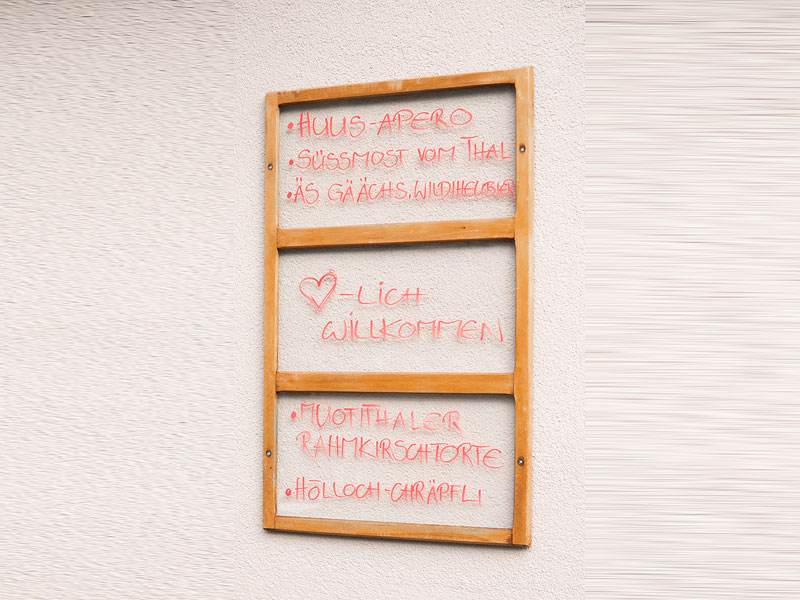 • HUUS-APERO
• SÜSSMOST VOM THAL
• ÄS GÄÄCHS, WILDIHEUBIER
♡-LICH
WILLKOMMEN
• MUOTITHALER
RAHMKIRSCHTORTE
• HÖLLOCH-CHRÄPFLI